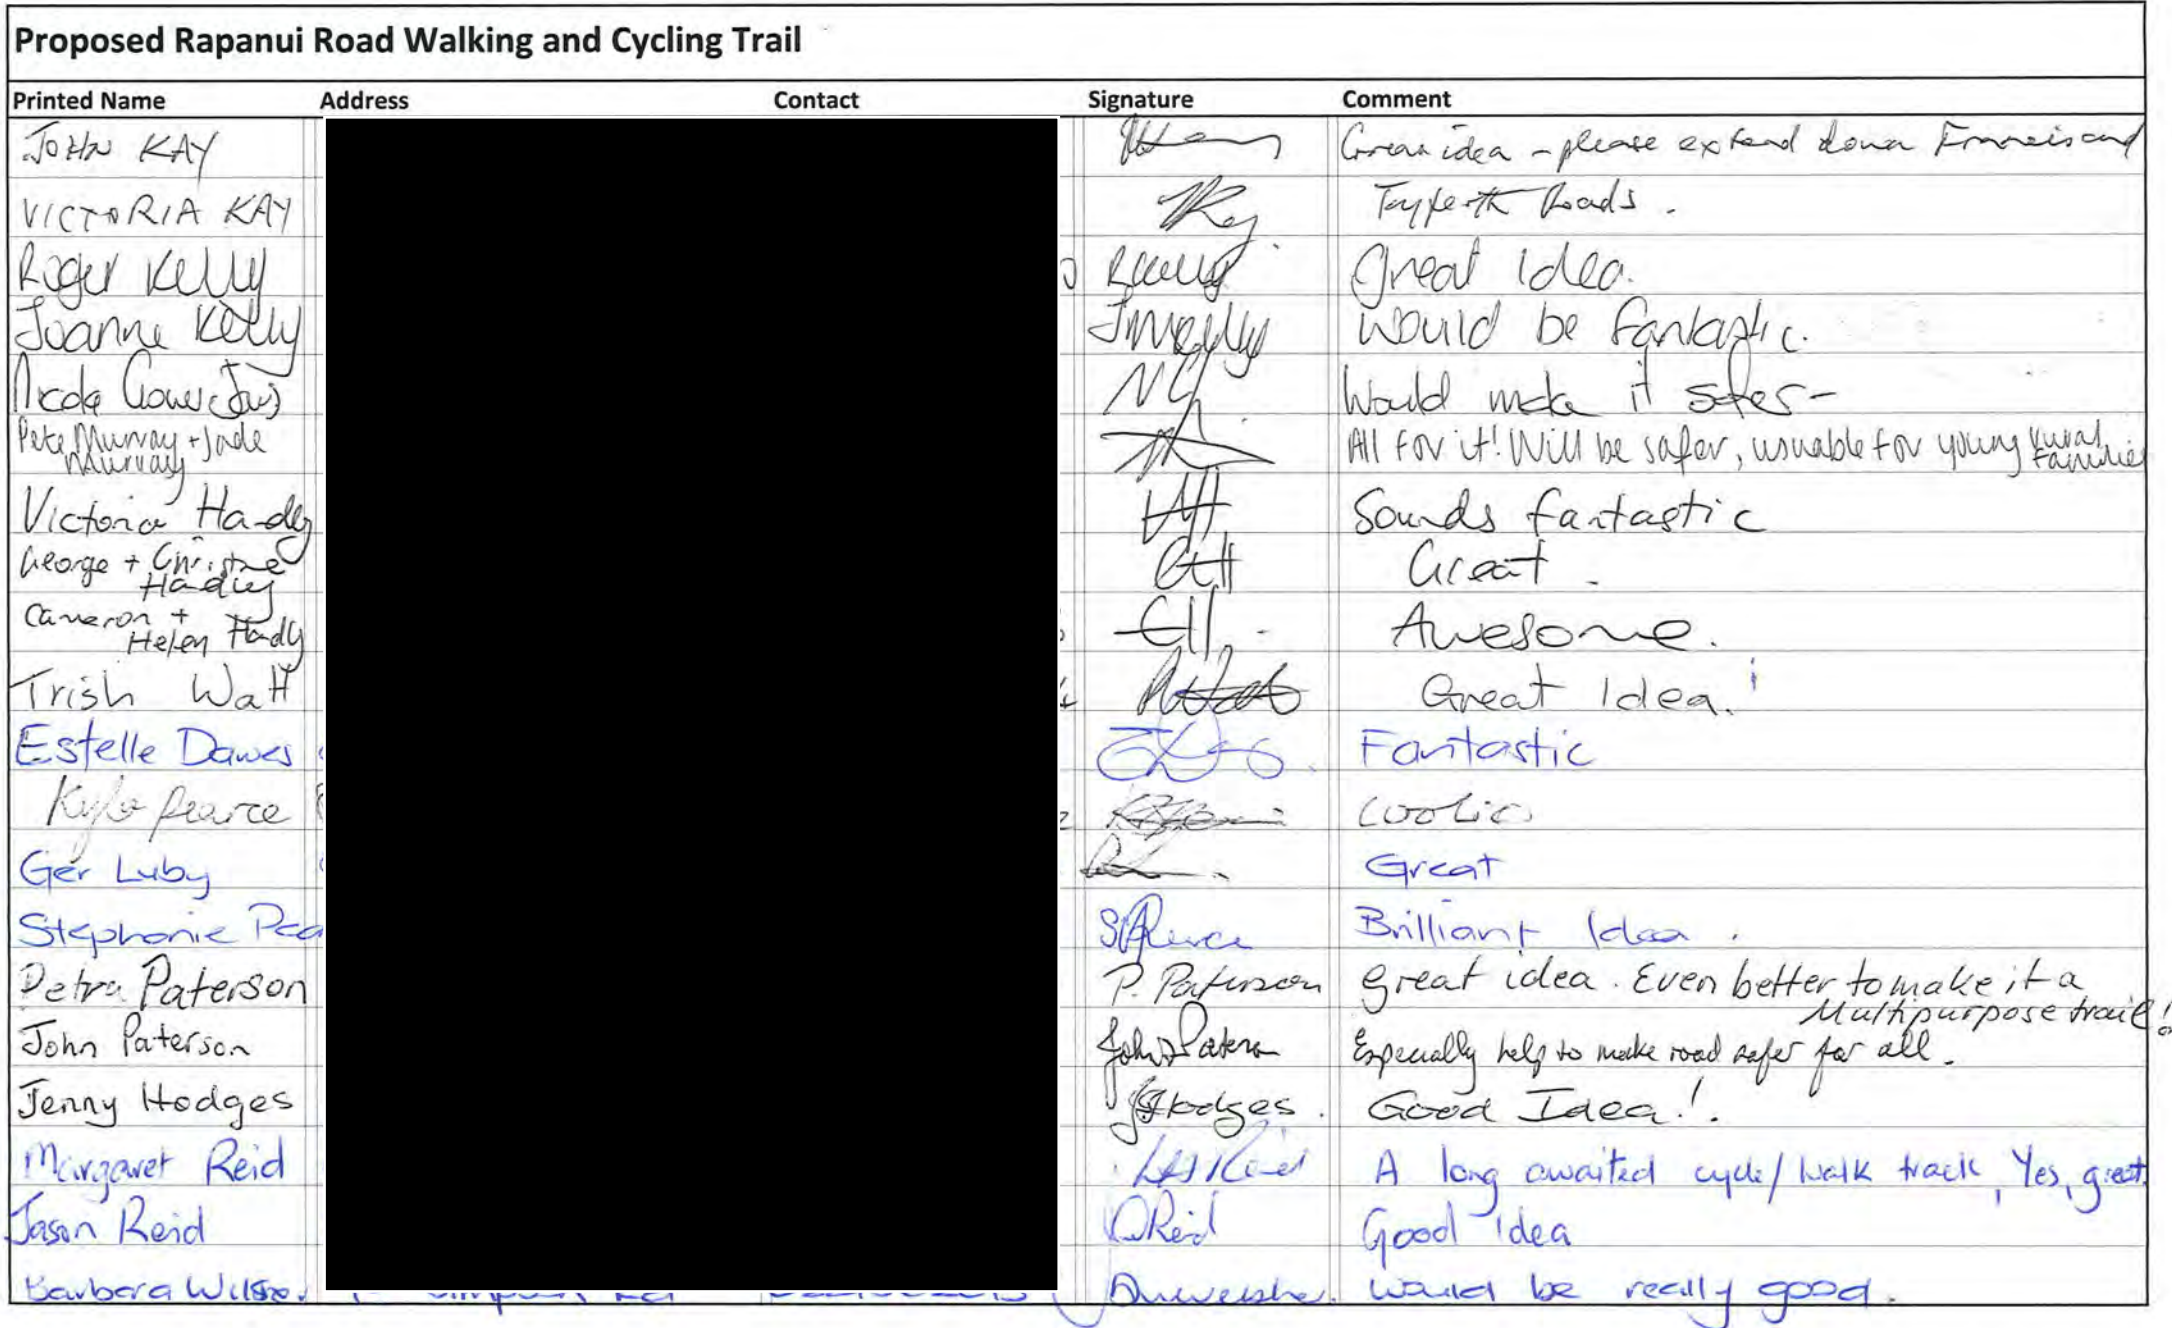 Proposed Rapanui Road Walking and Cycling Trail
Printed Name Address Contact Signature Comment
JOHN KAY Great idea - please extend down Francis and
VICTORIA KAY Tayforth Roads.
Roger Kelly Great Idea.
Joanne Kelly Would be fantastic.
Nicola Would make it safer-
Pete Murray + Jade Murray All for it! Will be safer, usuable for young rural families
Victoria Hardy Sounds fantastic
George + Christine Hardy Great.
Cameron + Helen Hardy Awesome.
Trish Watt Great Idea!
Estelle Dawes Fantastic
Kyle Pearce
Ger Luby Great
Stephanie Pea Brilliant Idea.
Petra Paterson P. Paterson great idea. Even better to make it a
Multipurpose trail!
John Paterson John Paterson Especially help to make road safer for all.
Jenny Hodges JHodges. Good Idea!.
Margaret Reid A long awaited cycle/walk track, Yes, great.
Jason Reid Reid Good idea
Barbara would be really good.